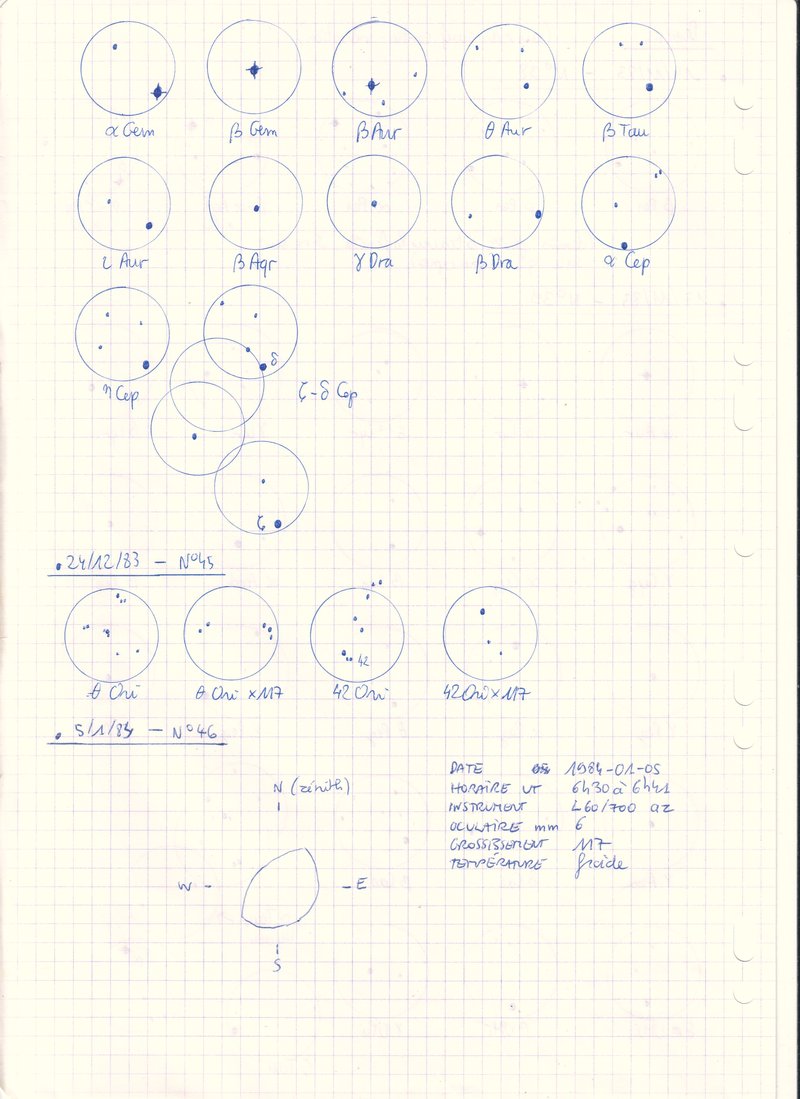 α Gem β Gem β Aur θ Aur β Tau
ι Aur β Aqr γ Dra β Dra α Cep
δ
η Cep ζ-δ Cep
ζ
. 24/12/83 — N°45
42
θ Ori θ Ori ×117 42 Ori 42 Ori ×117
. 5/1/84 — N°46
N (zénith)
W E
S
DATE 1984-01-05
HORAIRE UT 6h30 à 6h41
INSTRUMENT L60/700 az
OCULAIRE mm 6
GROSSISSEMENT 117
TEMPÉRATURE froide